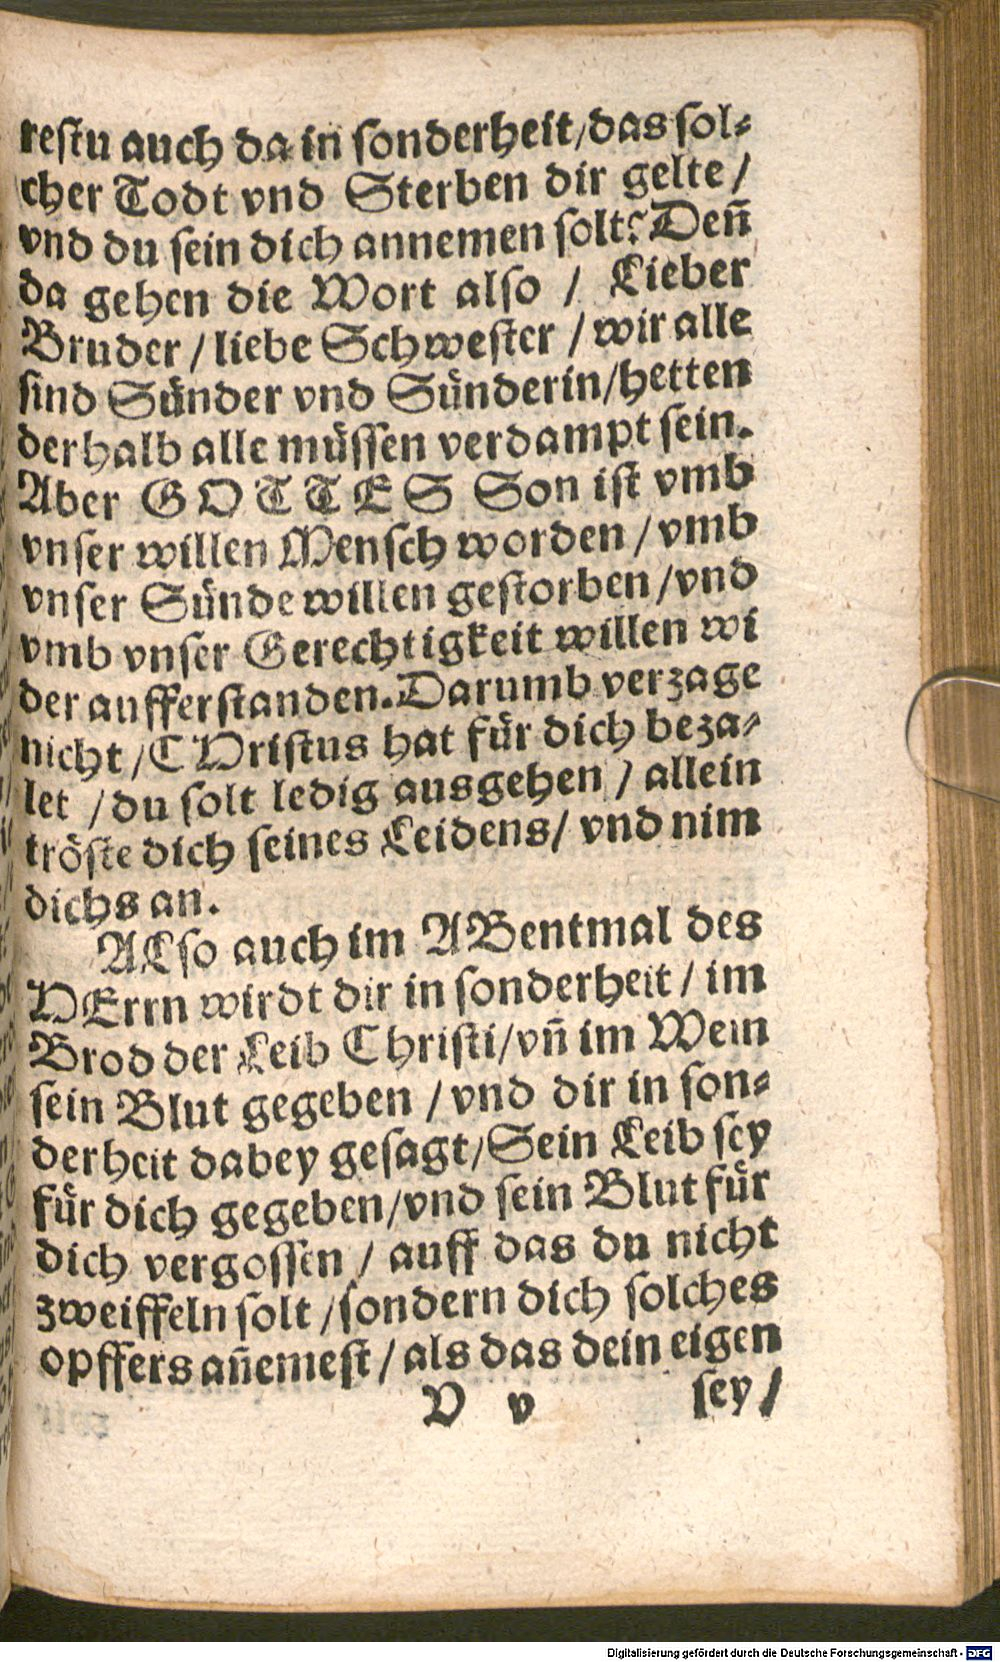 restu auch da in sonderheit/das sol-
cher Todt vnd Sterben dir gelte/
vnd du sein dich annemen solt? Deñ
da gehen die Wort also / Lieber
Bruder/liebe Schwester/wir alle
sind Sünder vnd Sünderin/hetten
derhalb alle müssen verdampt sein.
Aber GOTTES Son ist vmb
vnser willen Mensch worden/vmb
vnser Sünde willen gestorben/vnd
vmb vnser Gerechtigkeit willen wi
der aufferstanden. Darumb verzage
nicht/CHristus hat für dich beza-
let /du solt ledig ausgehen/ allein
tröste dich seines Leidens/ vnd nim
dichs an.
ALso auch im ABentmal des
HErrn wirdt dir in sonderheit/im
Brod der Leib Christi/vñ im Wein
sein Blut gegeben /vnd dir in son-
derheit dabey gesagt/Sein Leib sey
für dich gegeben/vnd sein Blut für
dich vergossen/ auff das du nicht
zweiffeln solt/sondern dich solches
opffers añemest/als das dein eigen
V v sey/
Digitalisierung gefördert durch die Deutsche Forschungsgemeinschaft - DFG